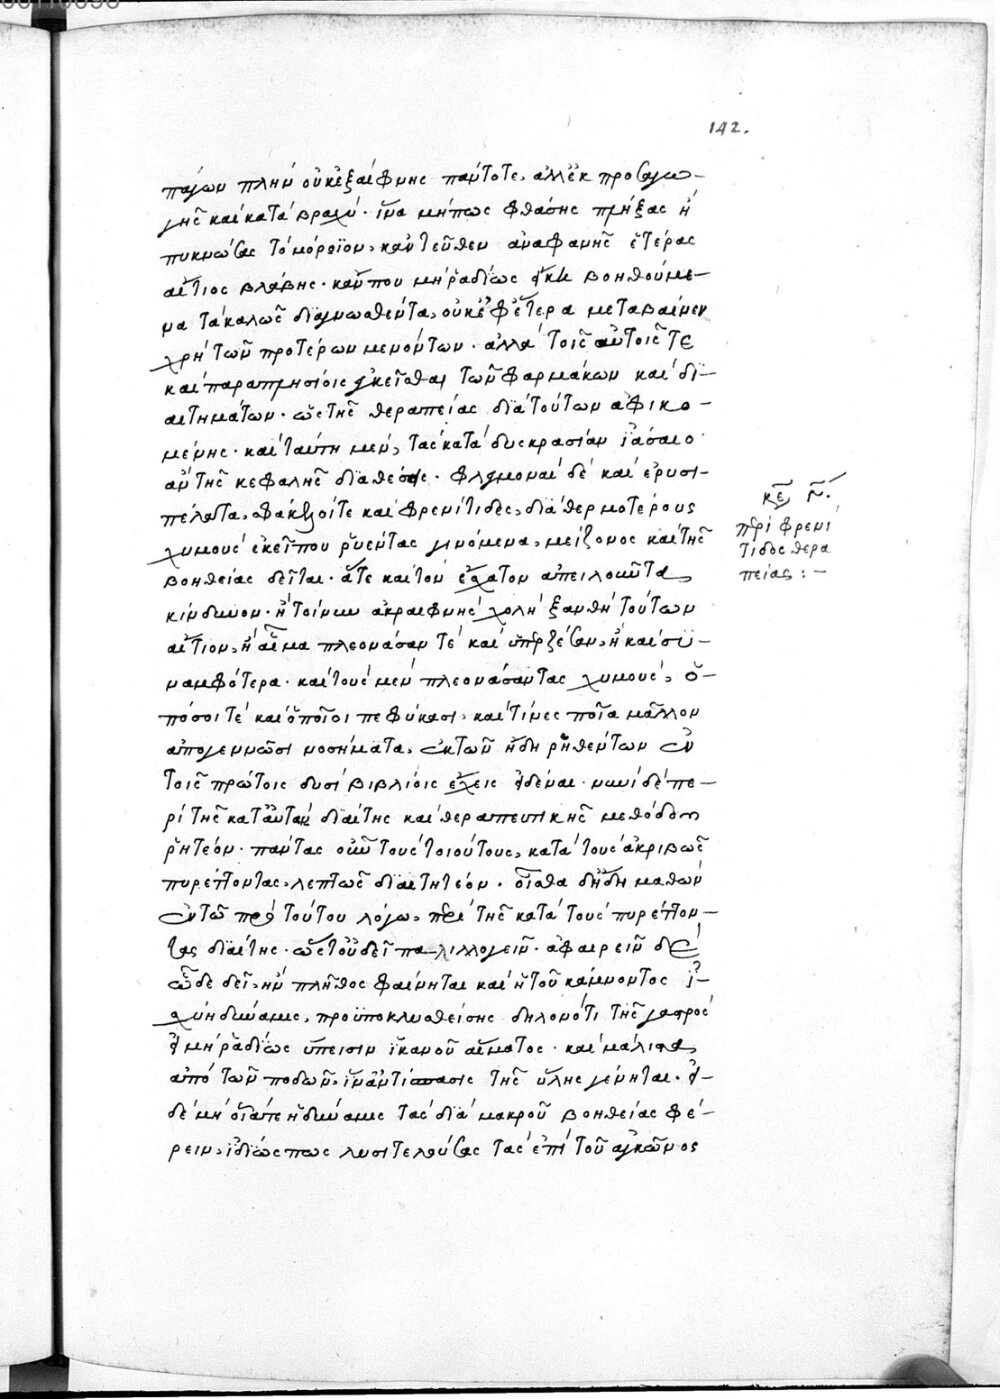 142.
παγων πλὴν οὐκ ἐξαίφνης πάντοτε, ἀλλ' ἐκ προσαγω-
γῆς καὶ κατὰ βραχύ. ἵνα μήπως φθάσης πήξας ἢ
πυκνώσας τὸ μόριον, κἀντεῦθεν ἀναφανῆς ἑτέρας
αἴτιος βλάβης. κἄν που μὴ ῥαδίως εἴκη βοηθούμε-
να τὰ καλῶς διαγνωσθέντα, οὐκ ἐφ' ἕτερα μεταβαίνειν
χρὴ τῶν προτέρων μενόντων. ἀλλὰ τοῖς αὐτοῖς τε
καὶ παραπλησίοις χρῆσθαι τῶν φαρμάκων καὶ δι-
αιτημάτων. ὡς τῆς θεραπείας διὰ τούτων ἀφικο-
μένης. καὶ ταύτη μὲν, τὰς κατὰ δυσκρασίαν ἰάσαιο
ἂν τῆς κεφαλῆς διαθέσεις. φλεγμοναὶ δὲ καὶ ἐρυσι-
πέλατα, σφάκελοί τε καὶ φρενίτιδες, διὰ θερμοτέρους
χυμοὺς ἐκεῖ που ῥυέντας γινόμενα, μείζονος καὶ τῆς
βοηθείας δεῖται. ἅτε καὶ τὸν ἔσχατον ἀπειλοῦντα
κίνδυνον. ἢ τοίνυν ἀκραιφνὴς χολὴ ξανθὴ τούτων
αἴτιον, ἢ αἷμα πλεονάσαν τὲ καὶ ὑπερζέσαν, ἢ καὶ συ-
ναμφότερα. καὶ τοὺς μὲν πλεονάσαντας χυμοὺς, ὁ-
πόσοι τὲ καὶ ὁποῖοι πεφύκασι, καὶ τίνες ποῖα μᾶλλον
ἀπογεννῶσι νοσήματα, ἐκ τῶν ἤδη ῥηθέντων ἐν
τοῖς πρώτοις δυσὶ βιβλίοις ἔχεις εἰδέναι. νυνὶ δὲ πε-
ρὶ τῆς κατ' αὐτῶν διαίτης καὶ θεραπευτικῆς μεθόδου
ῥητέον. πάντας οὖν τοὺς τοιούτους, κατὰ τοὺς ἀκριβῶς
πυρέττοντας, λεπτῶς διαιτητέον. οἶσθα δ' ἤδη μαθὼν
ἐν τῶ πρὸ τούτου λόγω, περὶ τῆς κατὰ τοὺς πυρέττον-
τας διαίτης. ὥστ' οὐ δεῖ παλιλλογεῖν. ἀφαιρεῖν δὲ
ὧδε δεῖ, ἢν πλῆθος φαίνηται καὶ ἡ τοῦ κάμνοντος ἰ-
σχύη δύναμις, προϋποκλυσθείσης δηλονότι τῆς γαστρὸς
εἰ μὴ ῥαδίως ὕπεισιν ἱκανοῦ αἵματος. καὶ μάλιστα
ἀπὸ τῶν ποδῶν, ἵν' ἀντίσπασις τῆς ὕλης γένηται. εἰ
δὲ μὴ οἷά τε ἡ δύναμις τὰς διὰ μακροῦ βοηθείας φέ-
ρειν, ἰδίως πως λυσιτελούσας τὰς ἐπὶ τοῦ ἀγκῶνος
κεφ. ν.
περὶ φρενί
τιδος θερα
πείας :-